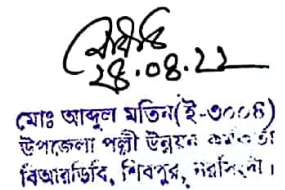 ২৪.০৪.২২
মোঃ আব্দুল মতিন(ই-৩০০৪)
উপজেলা পল্লী উন্নয়ন কর্মকর্তা
বিআরডিবি, শিবপুর, নরসিংদী।